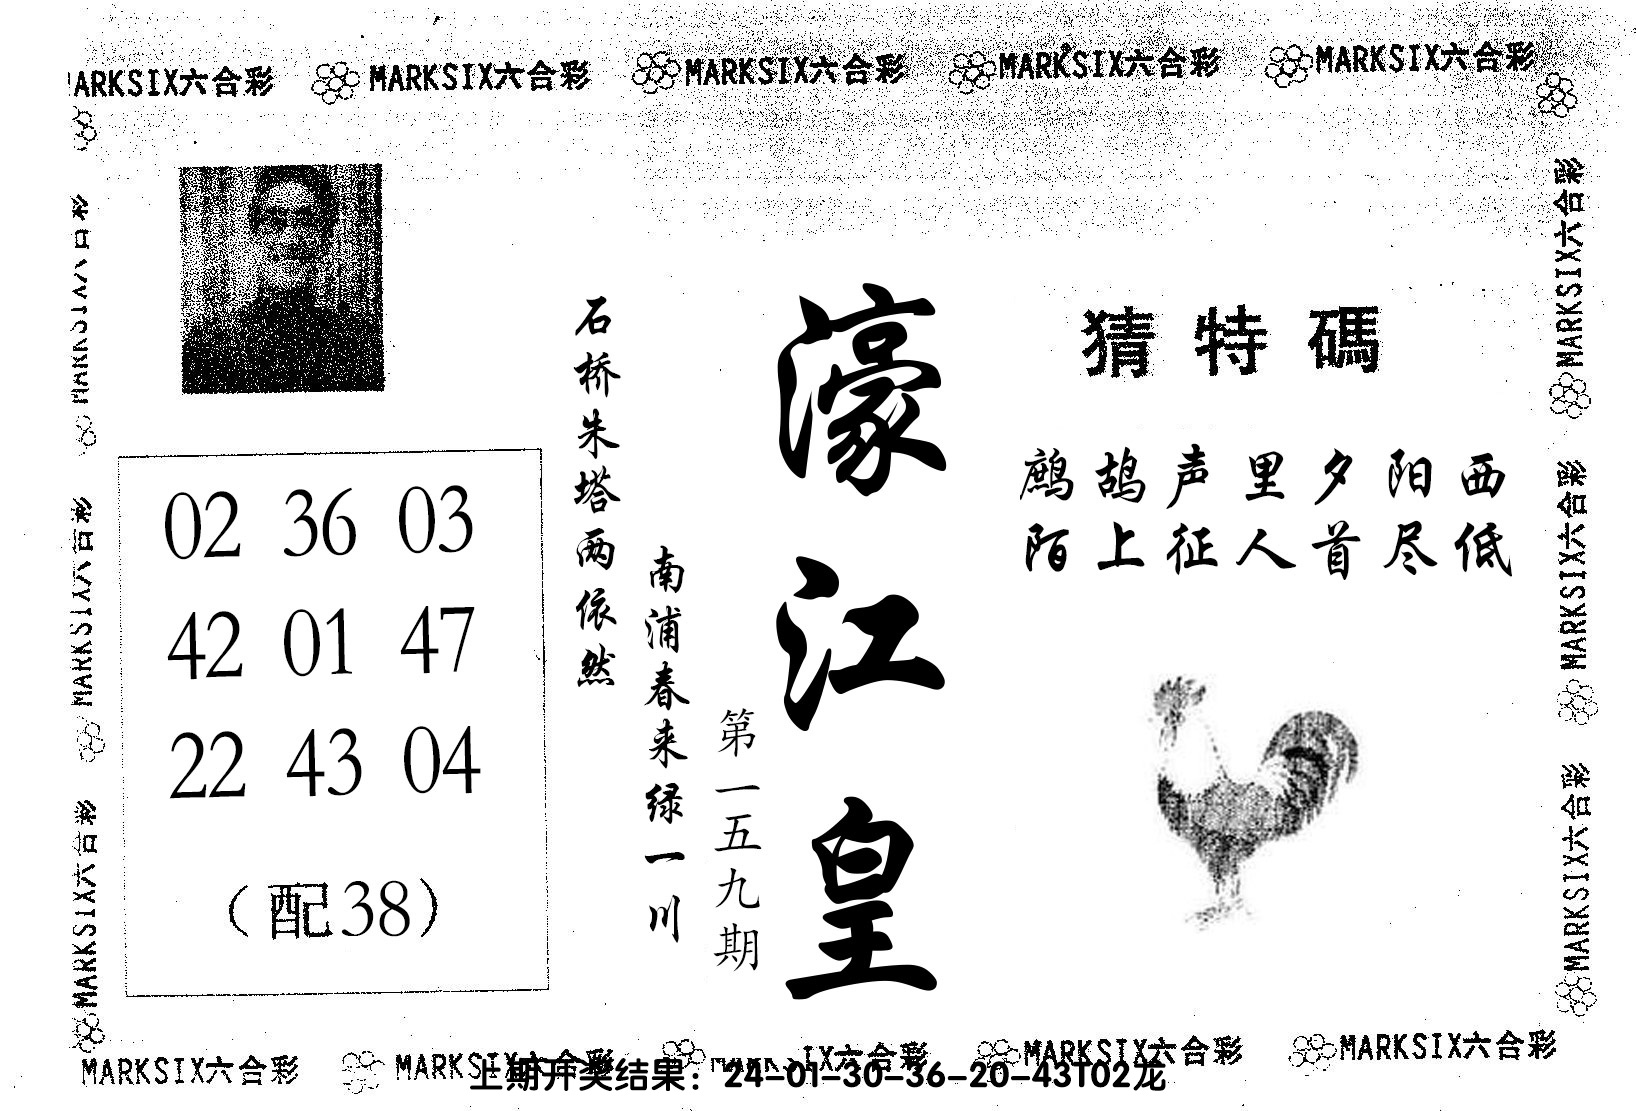 MARKSIX六合彩 MARKSIX六合彩 MARKSIX六合彩 MARKSIX六合彩
ARKSIX六合彩
濠江皇
第一五九期
猜特碼
鹧鸪声里夕阳西
陌上征人首尽低
石桥朱塔两依然
南浦春来绿一川
02 36 03
42 01 47
22 43 04
（配38）
MARKSIX六合彩
MARKSIX六合彩
MARKSIX六合彩
MARKSIX六合彩
MARKSIX六合彩
MARKSIX六合彩
MARKSIX六合彩 MARKSIX六合彩 IX六合彩 MARKSIX六合彩 MARKSIX六合彩
上期开奖结果：24-01-30-36-20-43T02龙